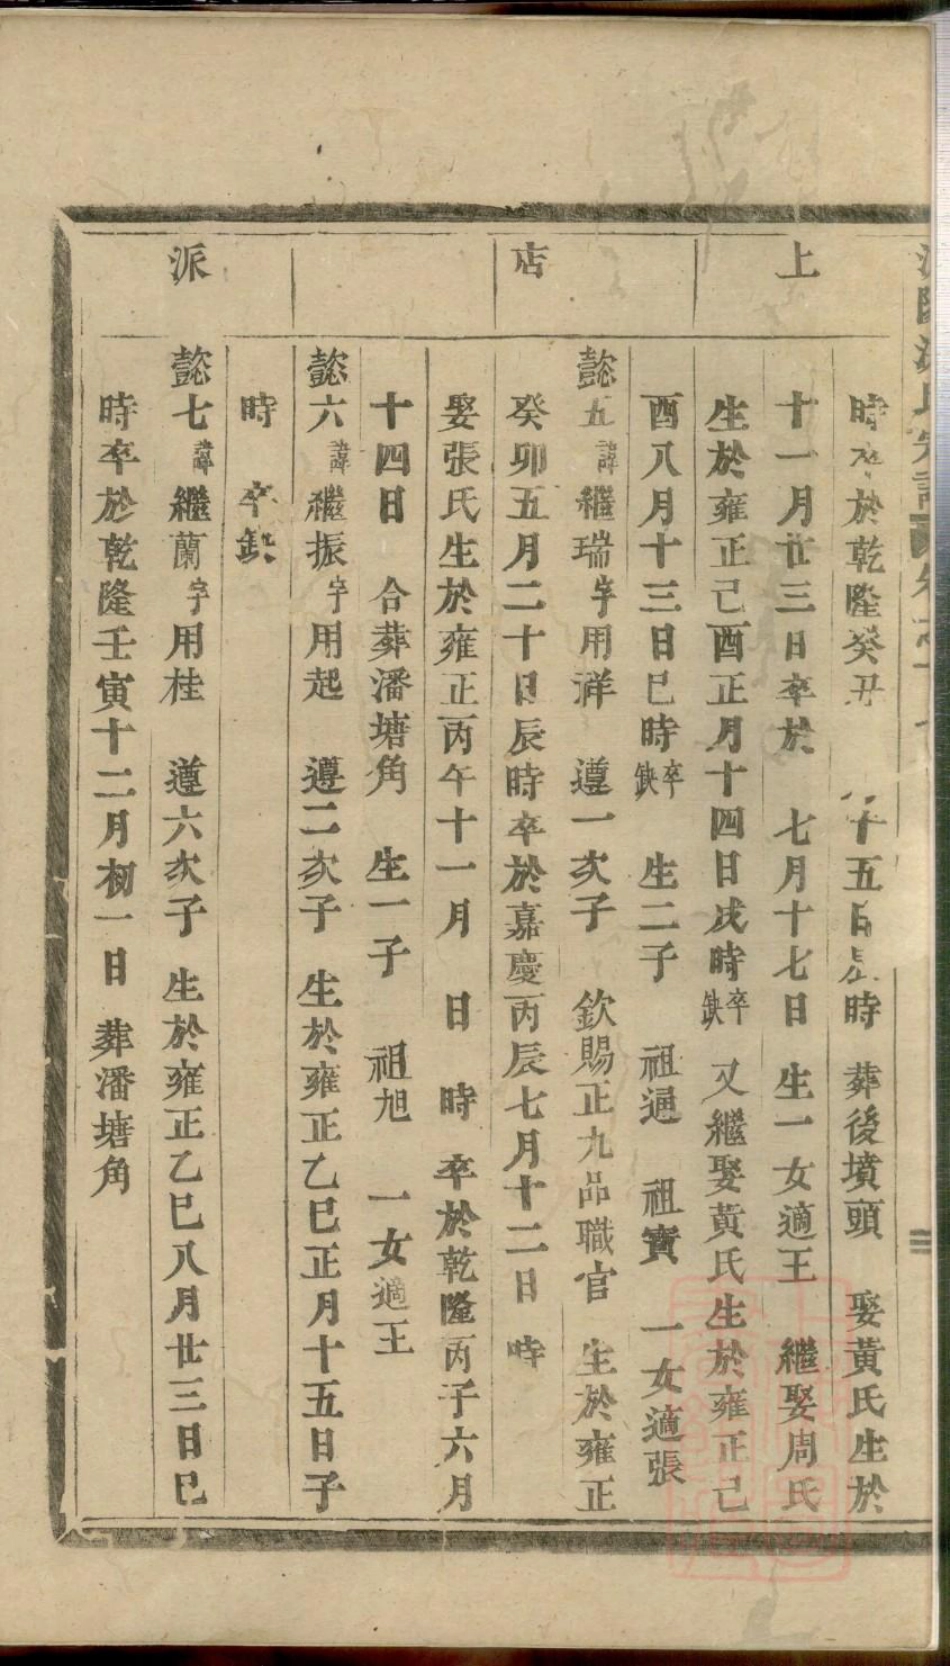 上店派
時卒於乾隆癸丑 十五日辰時 葬後墳頭 娶黃氏生於
十一月廿三日卒於 七月十七日 生一女適王 繼娶周氏
生於雍正己酉正月十四日戌時卒缺 又繼娶黃氏生於雍正己
酉八月十三日巳時卒缺 生二子 祖通 祖寶 一女適張
懿五諱繼瑞字用祥 遵一次子 欽賜正九品職官 生於雍正
癸卯五月二十日辰時卒於嘉慶丙辰七月十二日 時
娶張氏生於雍正丙午十一月 日 時 卒於乾隆丙子六月
十四日 合葬潘塘角 生一子 祖旭 一女適王
懿六諱繼振字用起 遵二次子 生於雍正乙巳正月十五日子
時 卒缺
懿七諱繼蘭字用桂 遵六次子 生於雍正乙巳八月廿三日巳
時卒於乾隆壬寅十二月初一日 葬潘塘角